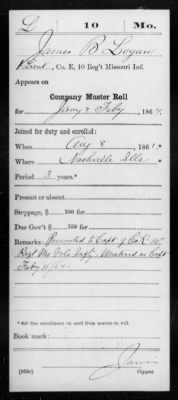 L 10 Mo.
James B. Logan
1 Lieut., Co. E, 10 Reg't Missouri Inf.
Appears on
Company Muster Roll
for Jany & Feby, 1864.
Joined for duty and enrolled:
When Aug 8, 1861.*
Where Nashville Ills
Period 3 years.*
Present or absent
Stoppage, $ 100 for
Due Gov't $ 100 for
Remarks: Promoted to Capt of Co K 10"
Regt Mo Vols Infty. Mustered as Capt
Feby 11/64.
*See enrollment on card from muster-in roll.
Book mark:
(858c) Copyist.